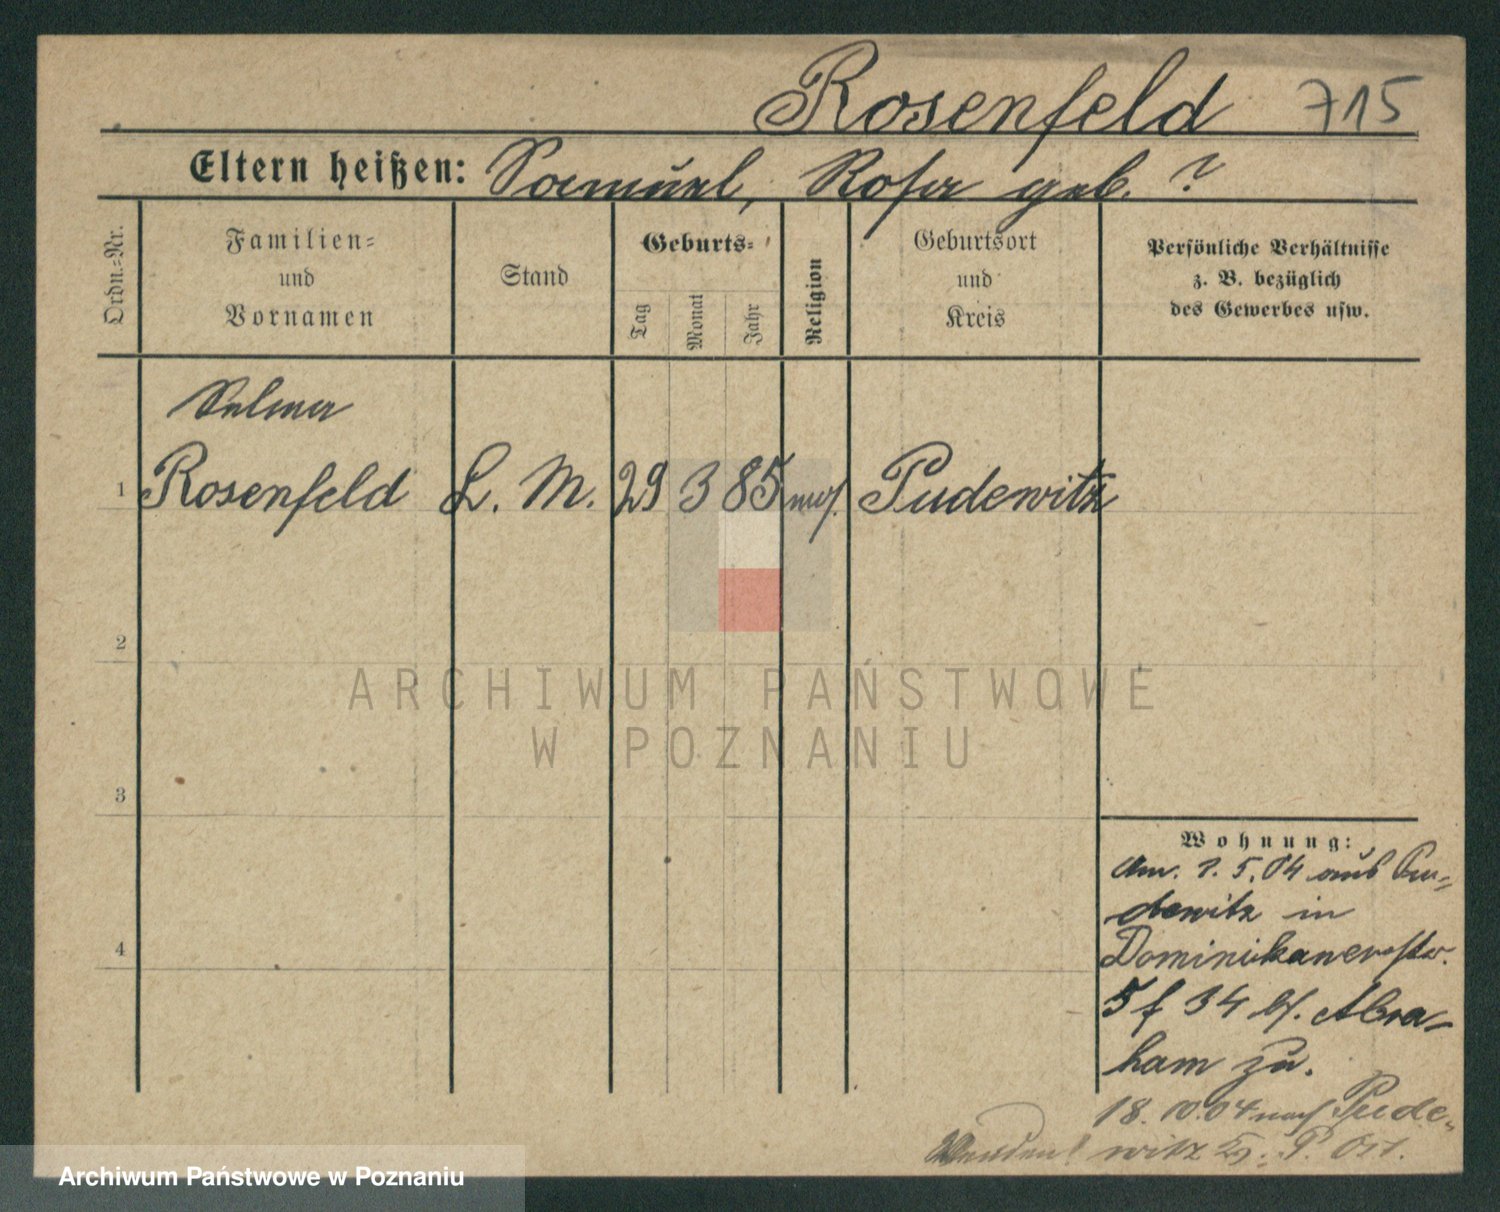 Rosenfeld 715
Eltern heißen: Samuel, Rosa geb. ?
Ordn.-Nr.
Familien-
und
Vornamen
Stand
Geburts-
Tag
Monat
Jahr
Religion
Geburtsort
und
Kreis
Persönliche Verhältnisse
z. B. bezüglich
des Gewerbes usw.
Selma
1 Rosenfeld L. M. 29 3 85 mos. Pudewitz
2
3
4
Wohnung:
Am. 1. 5. 04 aus Pu-
dewitz in
Dominikanerstr.
5 f 34 bf. Abra-
ham zu.
18. 10. 04 nach Pude-
Wenden! witz Kr. P. Ost.
ARCHIWUM PAŃSTWOWE
W POZNANIU
Archiwum Państwowe w Poznaniu